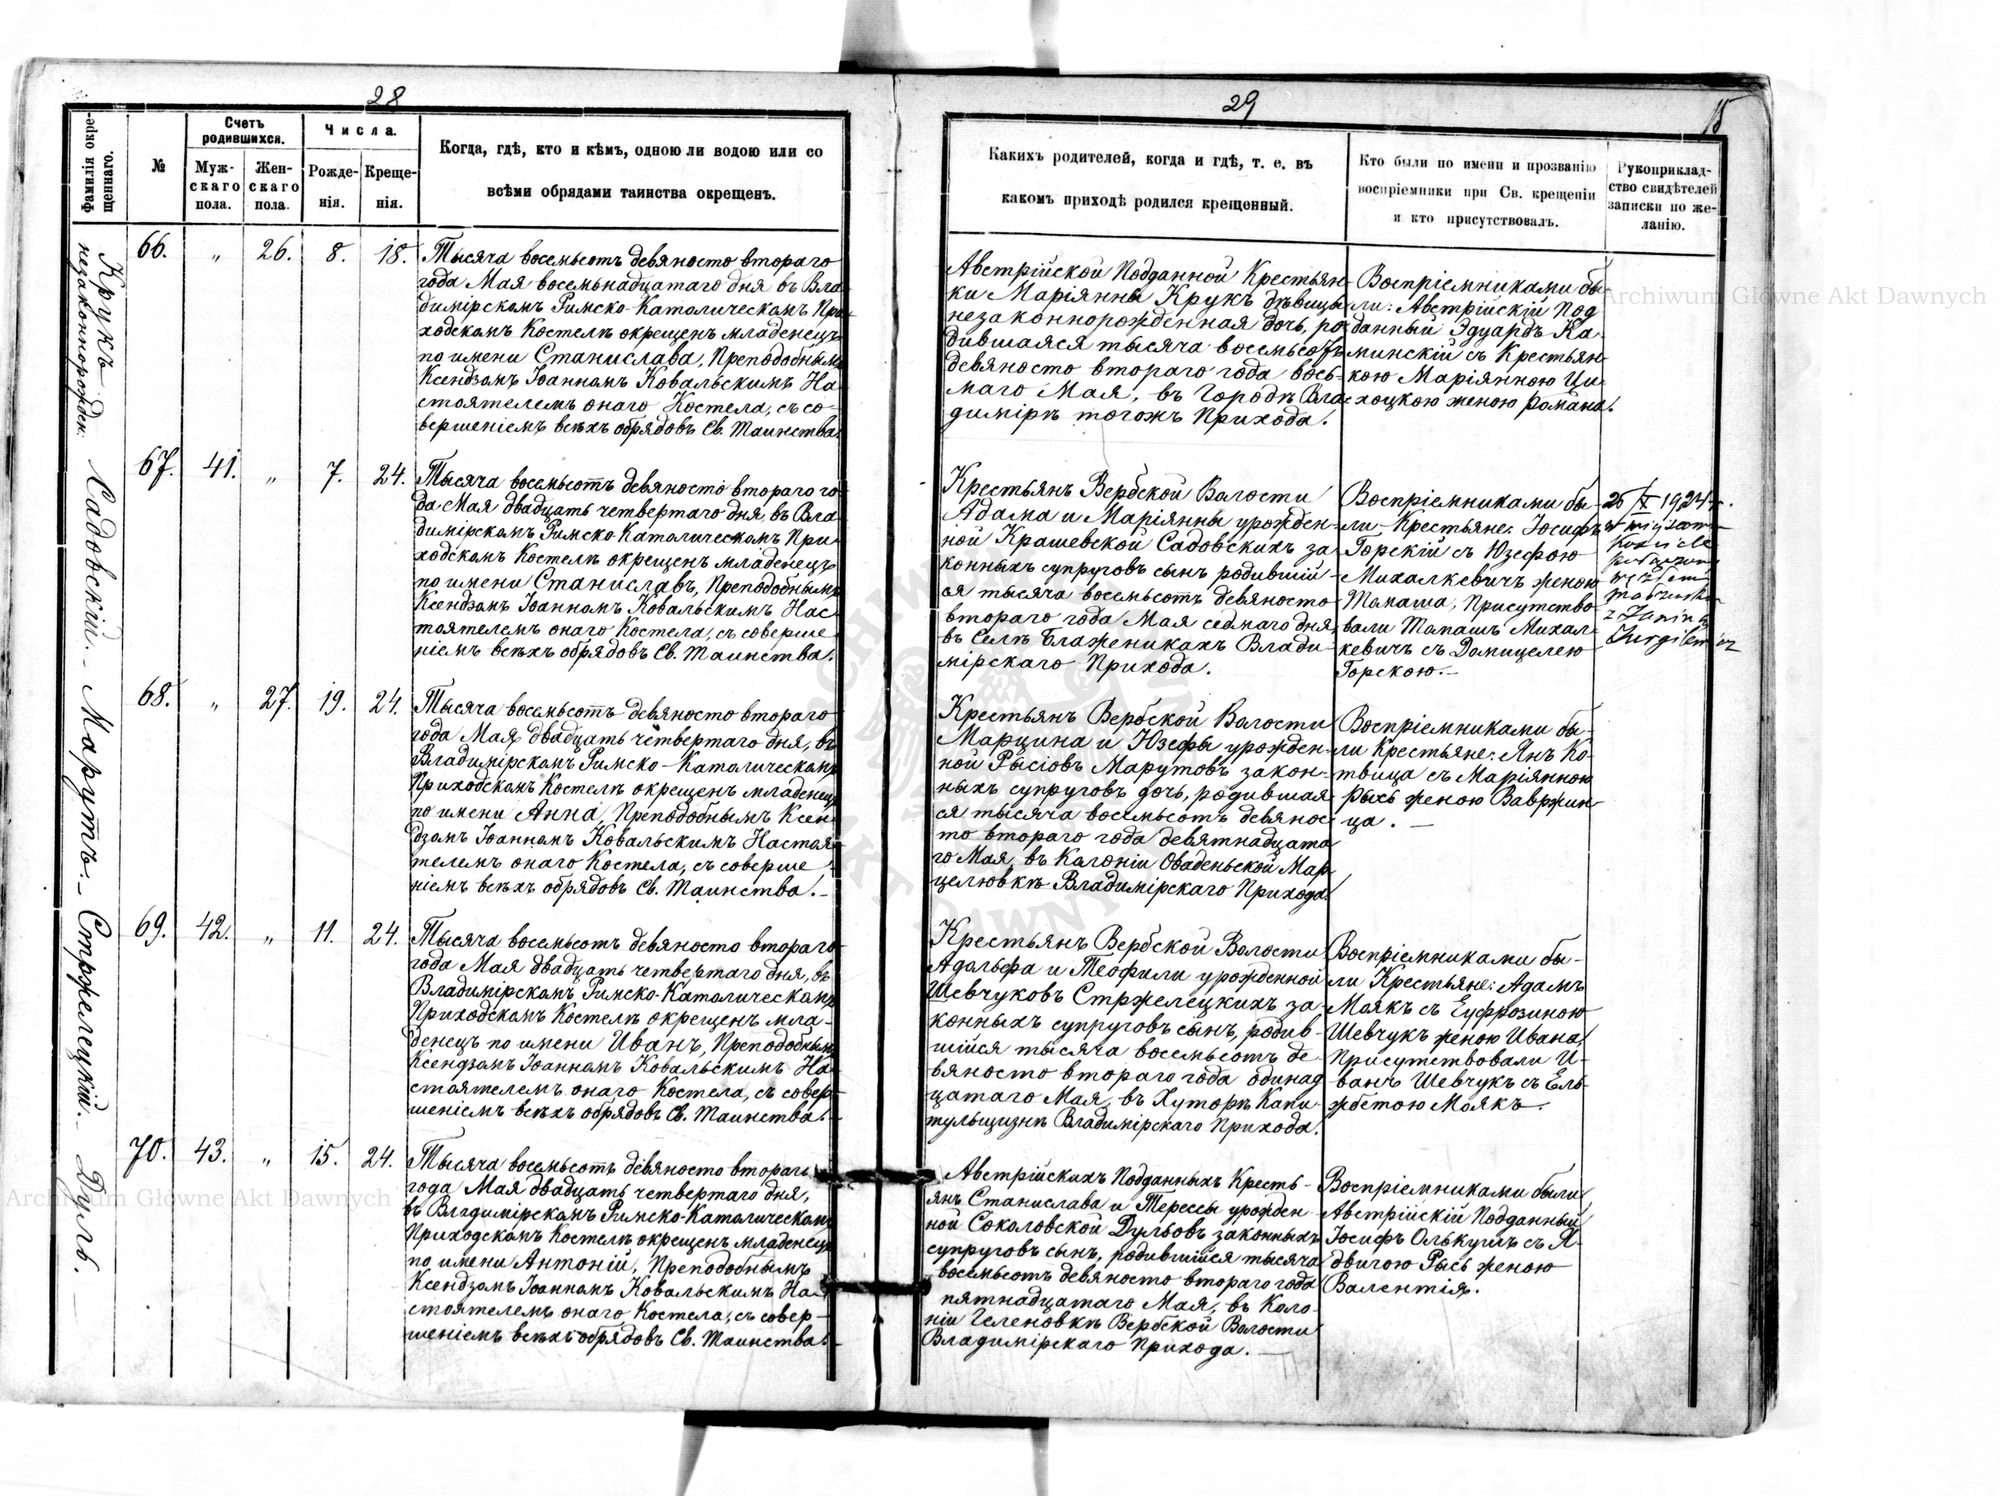 28
Фамилія окре-
щеннаго.
№
Счетъ
родившихся.
Муж-
скаго
пола.
Жен-
скаго
пола.
Числа.
Рожде-
нія.
Креще-
нія.
Когда, гдѣ, кто и кѣмъ, одною ли водою или со
всѣми обрядами таинства окрещенъ.
Крукъ
незаконнорожден.
66.
„
26.
8.
18.
Тысяча восемьсотъ девяносто втораго
года Мая восемьнадцатаго дня въ Вла-
димірскомъ Римско-Католическомъ При-
ходскомъ Костелѣ окрещенъ младенецъ
по имени Станислава, Преподобнымъ
Ксендзомъ Іоанномъ Ковальскимъ На-
стоятелемъ онаго Костела, съ со-
вершеніемъ всѣхъ обрядовъ Св. Таинства.
Садовскій.-
67.
41.
„
7.
24.
Тысяча восемьсотъ девяносто втораго го-
да Мая двадцать четвертаго дня, въ Вла-
димірскомъ Римско-Католическомъ При-
ходскомъ Костелѣ окрещенъ младенецъ
по имени Станиславъ, Преподобнымъ
Ксендзомъ Іоанномъ Ковальскимъ Нас-
тоятелемъ онаго Костела, съ соверше-
ніемъ всѣхъ обрядовъ Св. Таинства.
Марутъ.-
68.
„
27.
19.
24.
Тысяча восемьсотъ девяносто втораго
года Мая двадцать четвертаго дня, въ
Владимірскомъ Римско-Католическомъ
Приходскомъ Костелѣ окрещенъ младенецъ
по имени Анна, Преподобнымъ Ксен-
дзомъ Іоанномъ Ковальскимъ Настоя-
телемъ онаго Костела, съ соверше-
ніемъ всѣхъ обрядовъ Св. Таинства.-
Стржелецкій.-
69.
42.
„
11.
24.
Тысяча восемьсотъ девяносто втораго
года Мая двадцать четвертаго дня, въ
Владимірскомъ Римско-Католическомъ
Приходскомъ Костелѣ окрещенъ мла-
денецъ по имени Иванъ, Преподобнымъ
Ксендзомъ Іоанномъ Ковальскимъ На-
стоятелемъ онаго Костела, съ совер-
шеніемъ всѣхъ обрядовъ Св. Таинства.-
Дуль.
70.
43.
„
15.
24.
Тысяча восемьсотъ девяносто втораго
года Мая двадцать четвертаго дня,
въ Владимірскомъ Римско-Католическомъ
Приходскомъ Костелѣ окрещенъ младенецъ
по имени Антоній, Преподобнымъ
Ксендзомъ Іоанномъ Ковальскимъ На-
стоятелемъ онаго Костела, съ совер-
шеніемъ всѣхъ обрядовъ Св. Таинства.-
29
15
Какихъ родителей, когда и гдѣ, т. е. въ
какомъ приходѣ родился крещенный.
Кто были по имени и прозванію
воспріемники при Св. крещеніи
и кто присутствовалъ.
Рукоприклад-
ство свидѣтелей
записки по же-
ланію.
Австрійской Подданной Крестьян-
ки Маріянны Крукъ дѣвицы
незаконнорожденная дочь, ро-
дившаяся тысяча восемьсотъ
девяносто втораго года вось-
маго Мая, въ Городѣ Вла-
димірѣ тогожъ Прихода.
Воспріемниками бы-
ли: Австрійскій Под-
данный Эдуардъ Ка-
минскій съ Крестьян-
кою Маріянною Ци-
хоцкою женою Романа.
Крестьянъ Вербской Волости
Адама и Маріянны урожден-
ной Крашевской Садовскихъ за-
конныхъ супруговъ сынъ родившій-
ся тысяча восемьсотъ девяносто
втораго года Мая седмаго дня,
въ Селѣ Блаженикахъ Влади-
мірскаго Прихода.
Воспріемниками бы-
ли - Крестьяне: Іосифъ
Горскій съ Юзефою
Михалкевичъ женою
Томаша, Присутство-
вали Томашъ Михал-
кевичъ съ Домицелею
Горскою.-
1924 r.
w tutejszym
Kościele
z Janiną
Крестьянъ Вербской Волости
Марцина и Юзефы урожден-
ной Рысіовъ Марутовъ закон-
ныхъ супруговъ дочь, родившая-
ся тысяча восемьсотъ девянос-
то втораго года девятнадцата-
го Мая, въ Колоніи Оваденьской Мар-
целювкѣ Владимірскаго Прихода.
Воспріемниками бы-
ли Крестьяне: Янъ Ко-
твица съ Маріянною
Рысь женою Вавржин-
ца. -
Крестьянъ Вербской Волости
Адольфа и Теофили урожденной
Шевчуковъ Стржелецкихъ за-
конныхъ супруговъ сынъ, родив-
шійся тысяча восемьсотъ де-
вяносто втораго года одинад-
цатаго Мая, въ Хуторѣ Капи-
тульщизнѣ Владимірскаго Прихода.
Воспріемниками бы-
ли Крестьяне: Адамъ
Маякъ съ Еуфрозиною
Шевчукъ женою Ивана
Присутствовали И-
ванъ Шевчукъ съ Ель-
жбетою Маякъ.
Австрійскихъ Подданныхъ Кресть-
янъ Станислава и Терессы урожден-
ной Соколовской Дульовъ законныхъ
супруговъ сынъ, родившійся тысяча
восемьсотъ девяносто втораго года
пятнадцатаго Мая, въ Коло-
ніи Геленовкѣ Вербской Волости
Владимірскаго Прихода. -
Воспріемниками были
Австрійскій Подданный
Іосифъ Олькушъ съ Я-
двигою Рысь женою
Валентія.
Archiwum Główne Akt Dawnych
Archiwum Główne Akt Dawnych